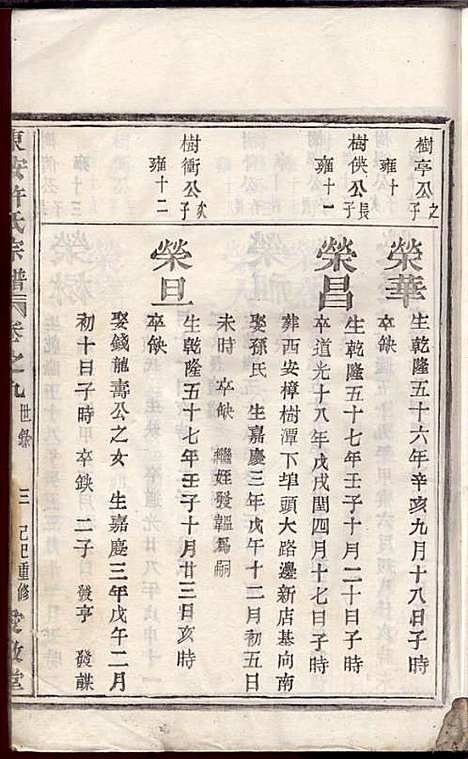 樹亭公之子
雍十
榮華
生乾隆五十六年辛亥九月十八日子時
卒缺
樹供公長子
雍十一
榮昌
生乾隆五十七年壬子十月二十日子時
卒道光十八年戊戌閏四月十七日子時
葬西安樟樹潭下埠頭大路邊新店基向南
娶孫氏 生嘉慶三年戊午十二月初五日
未時 卒缺 繼姪發韞為嗣
樹衝公次子
雍十二
榮旦
生乾隆五十七年壬子十月廿三日亥時
卒缺
娶錢龍壽公之女 生嘉慶三年戊午二月
初十日子時 卒缺 二子 發亨 發謀
東安許氏宗譜 卷之九 世錄 三 己巳重修 愛敬堂